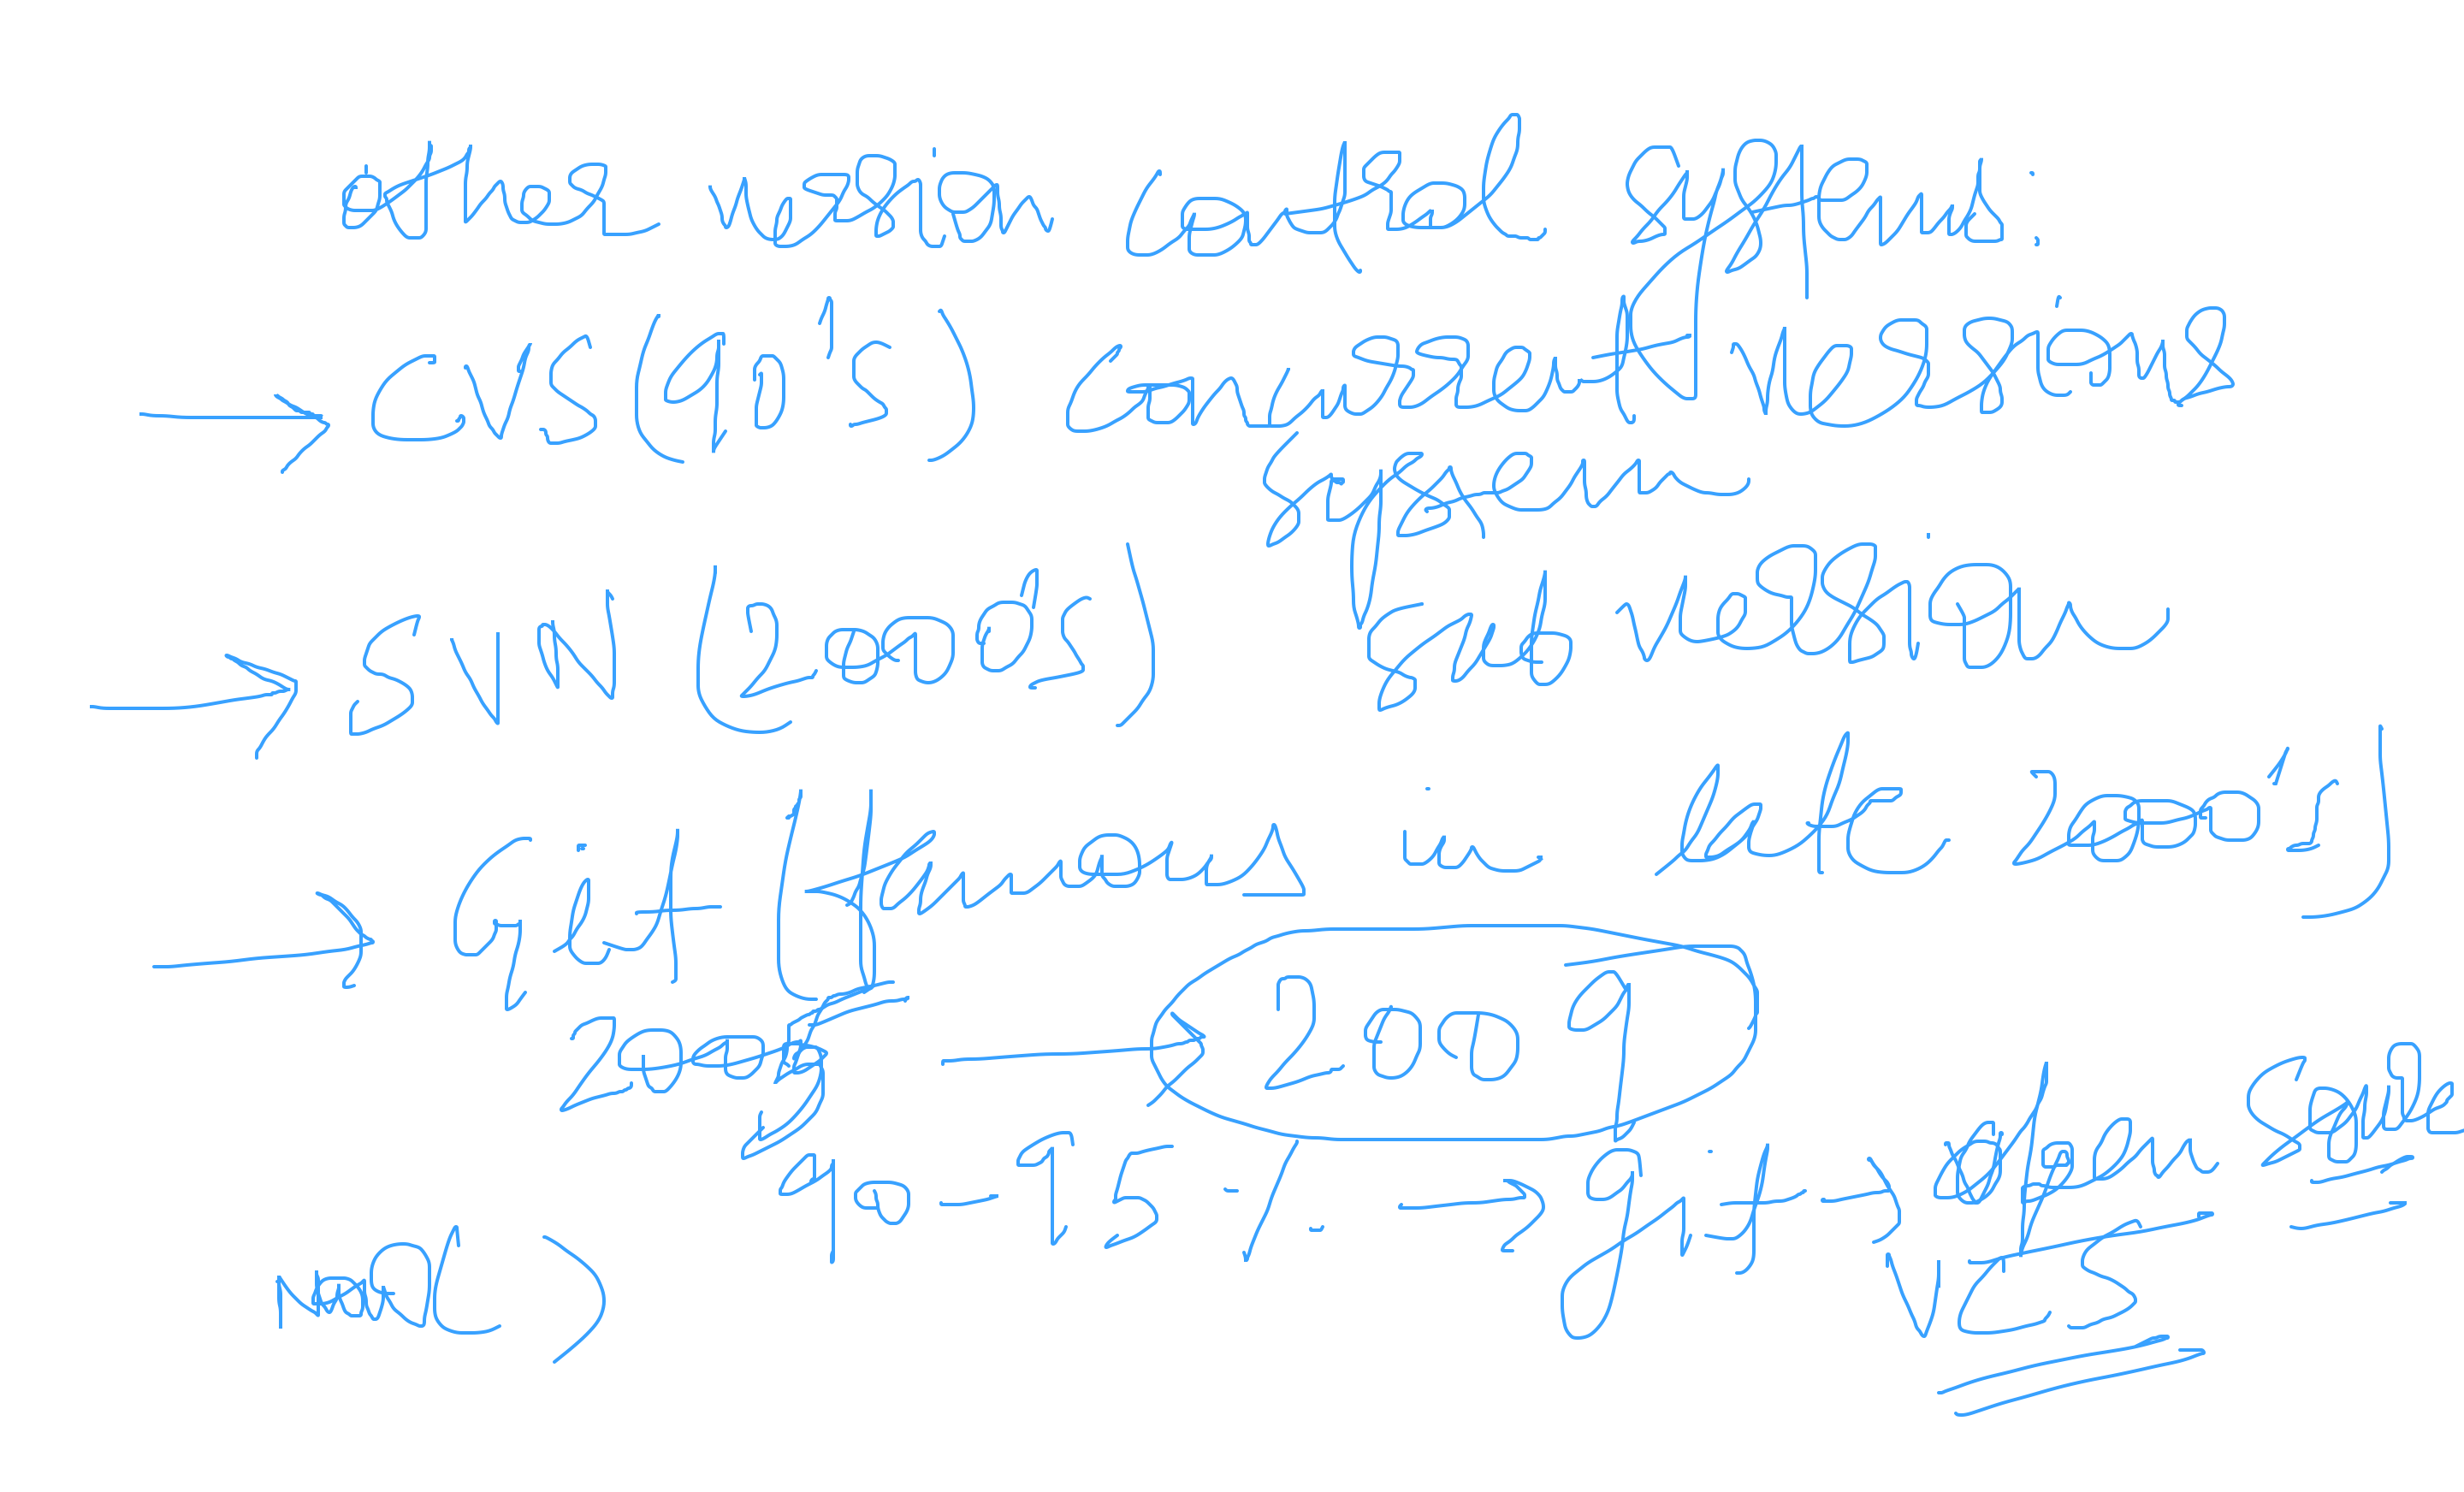 other version control systems:
→ CVS (90's) Concurrent versions
system
→ SVN (2000's) sub version
Git → famous in late 2000's)
2005 → 2009
90-95% → git → modern
VCS
Mac )